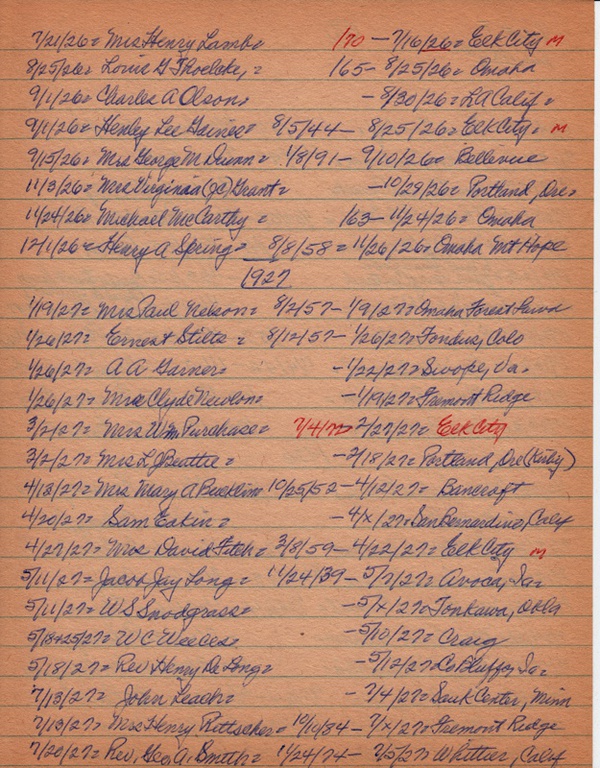 7/21/26= Mrs Henry Lamb= 1/70 - 7/16/26= Elk City M
8/25/26= Louis G Thoelcke, = 1/65- 8/25/26= Omaha
9/1/26= Charles A Olson= -8/30/26= LA Calif =
9/1/26= Henley Lee Gaines= 8/5/44- 8/25/26= Elk City= M
9/15/26= Mrs George M Dunn= 1/8/91- 9/10/26= Bellevue
11/3/26= Mrs Virginia (JC) Grant= -10/29/26= Portland, Ore=
11/24/26= Michael McCarthy = 1/63- 11/24/26= Omaha
12/1/26= Henry A Spring= 8/8/58= 11/26/26= Omaha Mt Hope
1927
1/19/27= Mrs Paul Nelson= 8/2/57- 1/9/27= Omaha Forest Lawn
1/26/27= Ernest Stilts = 8/12/57- 1/26/27= Colo
1/26/27= A A Garner= -1/22/27= Swope, Va.
1/26/27= Mrs Clyde Newlon= -1/19/27= Fremont Ridge
3/2/27= Mrs Wm Purchase= 2/27/27= Elk City
3/2/27= Mrs L J Beattie= -2/18/27= Portland, Ore (Kirby)
4/13/27= Mrs Mary A Bucklin= 10/25/52- 4/12/27= Bancroft
4/20/27= Sam Eakin= -4/x/27= San Bernardino, Calif
4/27/27= Mrs David Fitch= 3/8/59- 4/22/27= Elk City M
5/11/27= Jacob Jay Long= 11/24/39- 5/7/27= Avoca, Ia=
5/11/27= W S Snodgrass= -5/x/27= Tonkawa, Okla
5/18+25/27= W C Weeces= -5/10/27= Craig
5/18/27= Rev Henry De Long= -5/12/27= Co Bluffs, Ia=
7/13/27= John Leach= -7/4/27= Sauk Center, Minn
7/13/27= Mrs Henry Rittscher= 10/14/84- 7/x/27= Fremont Ridge
7/20/27= Rev, Geo, A. Smith= 11/24/74- 7/5/27= Whittier, Calif